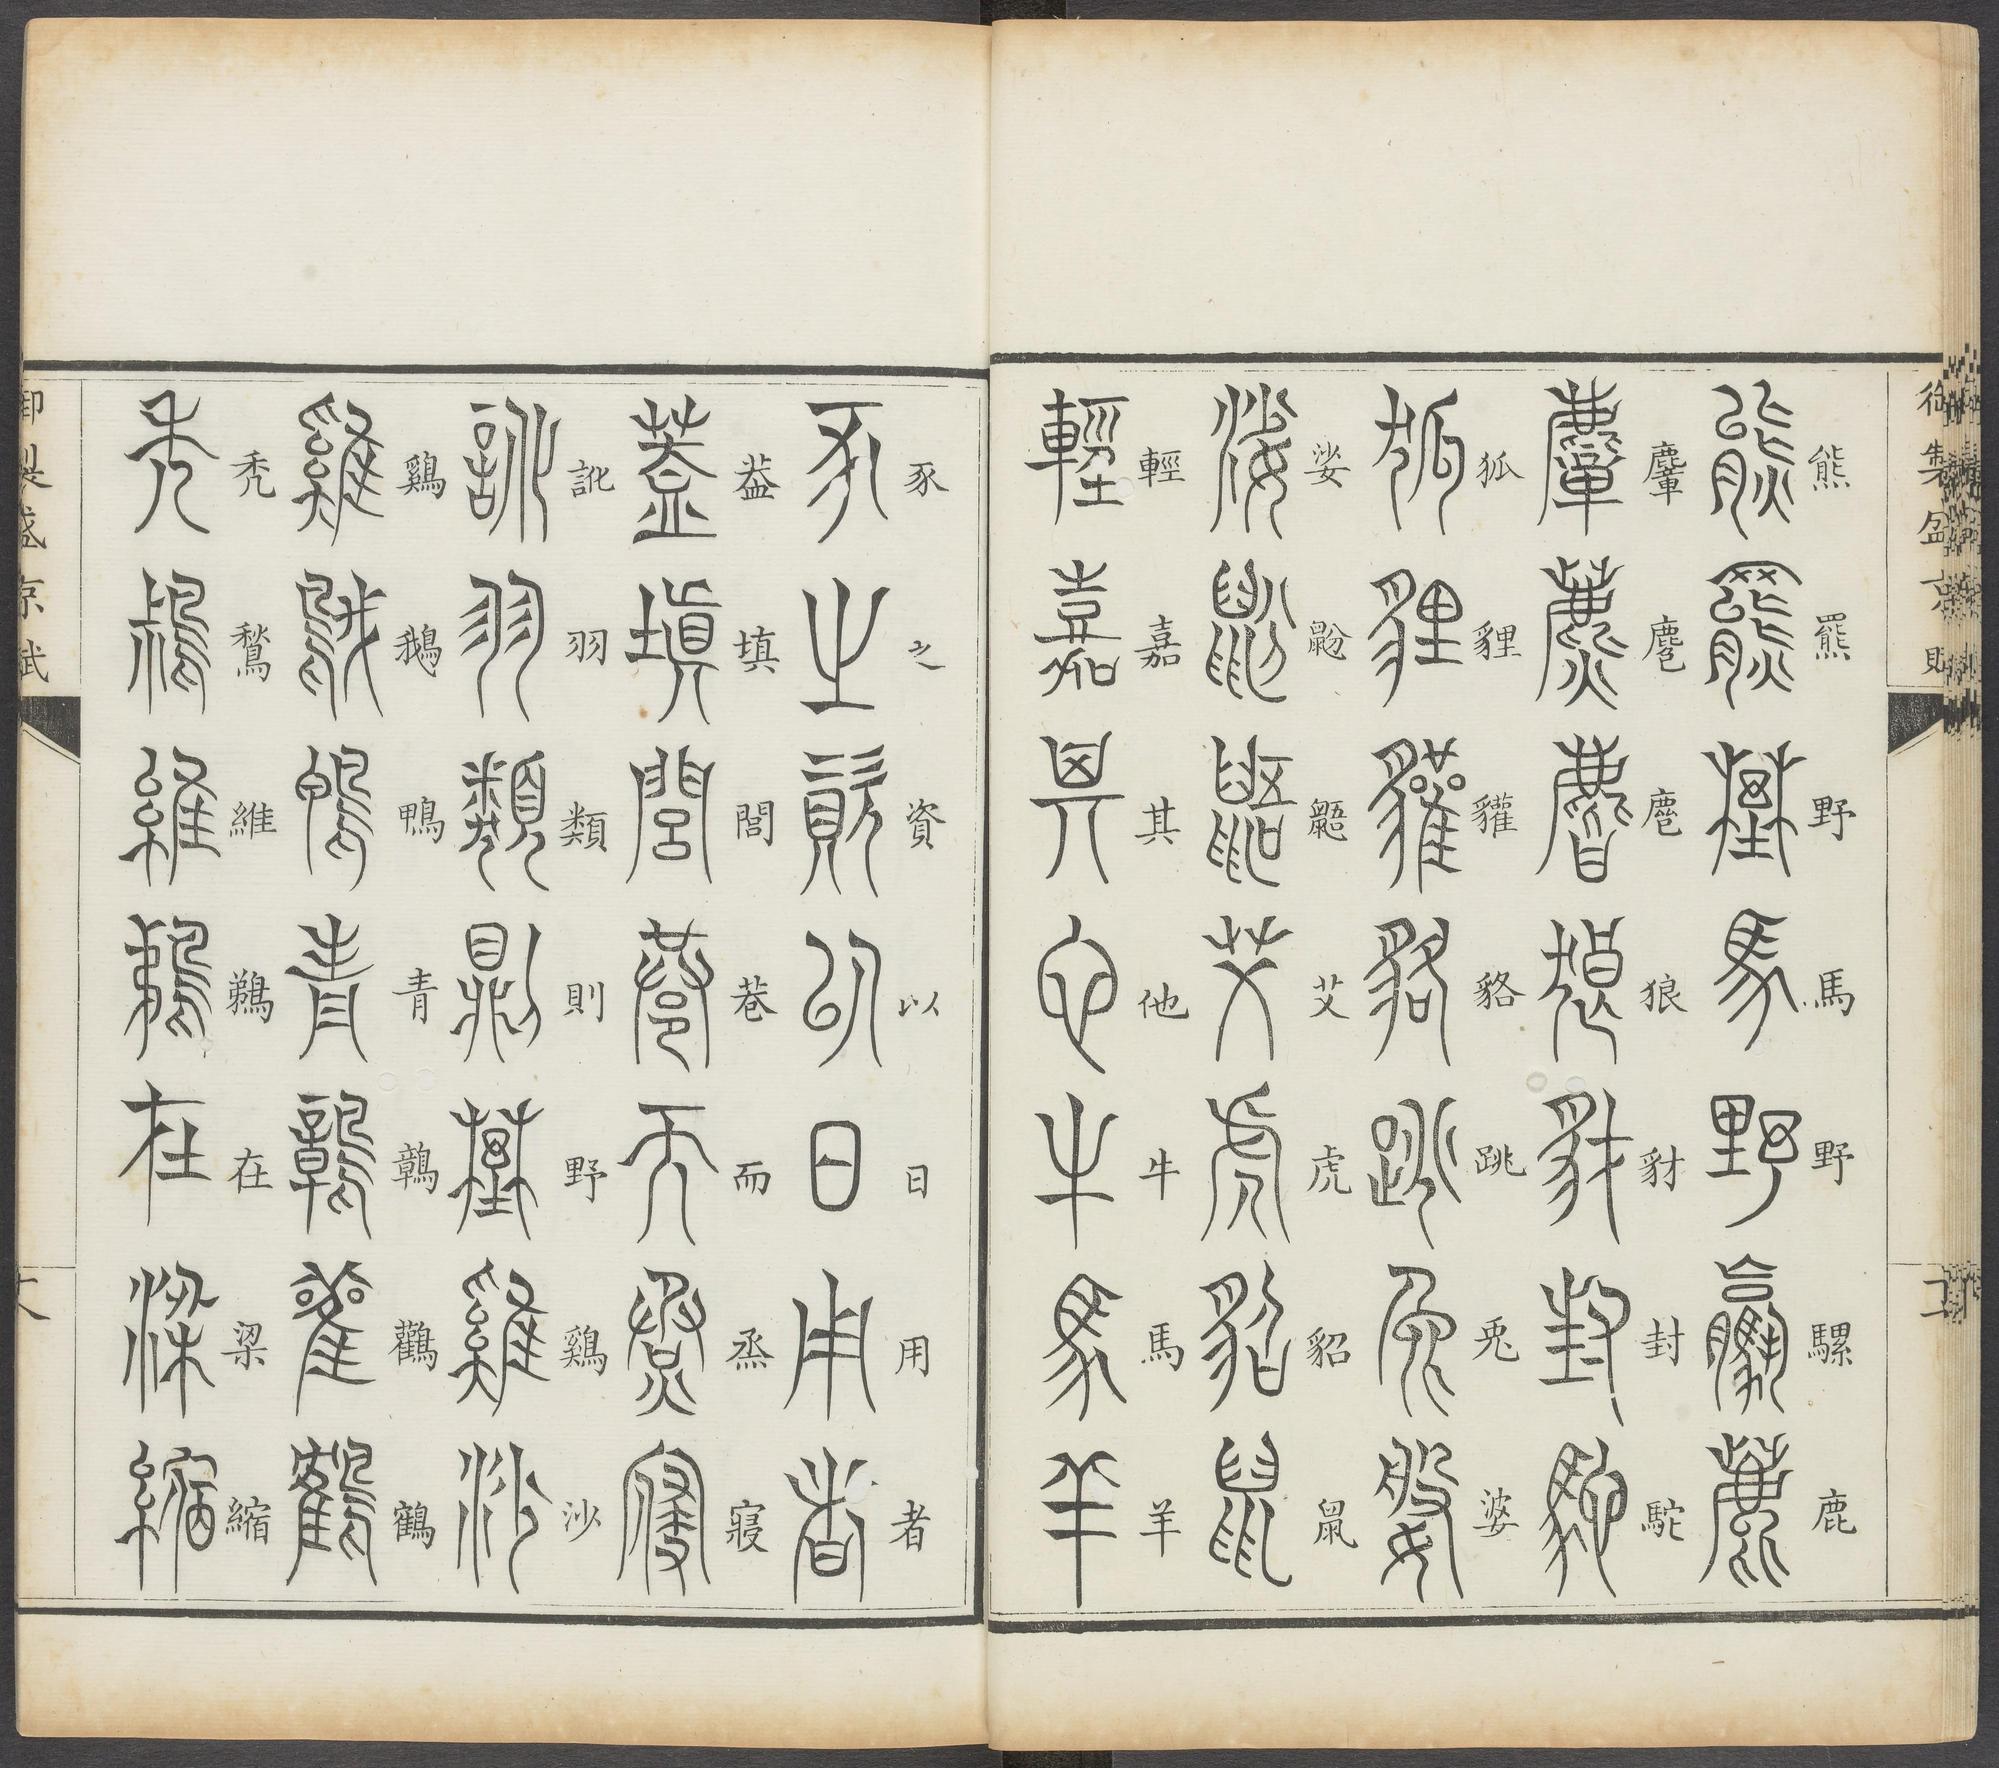 御製盛京賦
熊羆野馬野騾鹿
麞麅麂狼豺封駝
狐貍貛貉跳兎婆
娑鼢鼯艾虎貂鼠
輕嘉其他牛馬羊
豕之資以日用者
葢填閭巷而烝寢
訛羽類則野鷄沙
鷄鵝鴨青鶉鸛鶴
禿鶖維鵜在梁縮
御製盛京賦